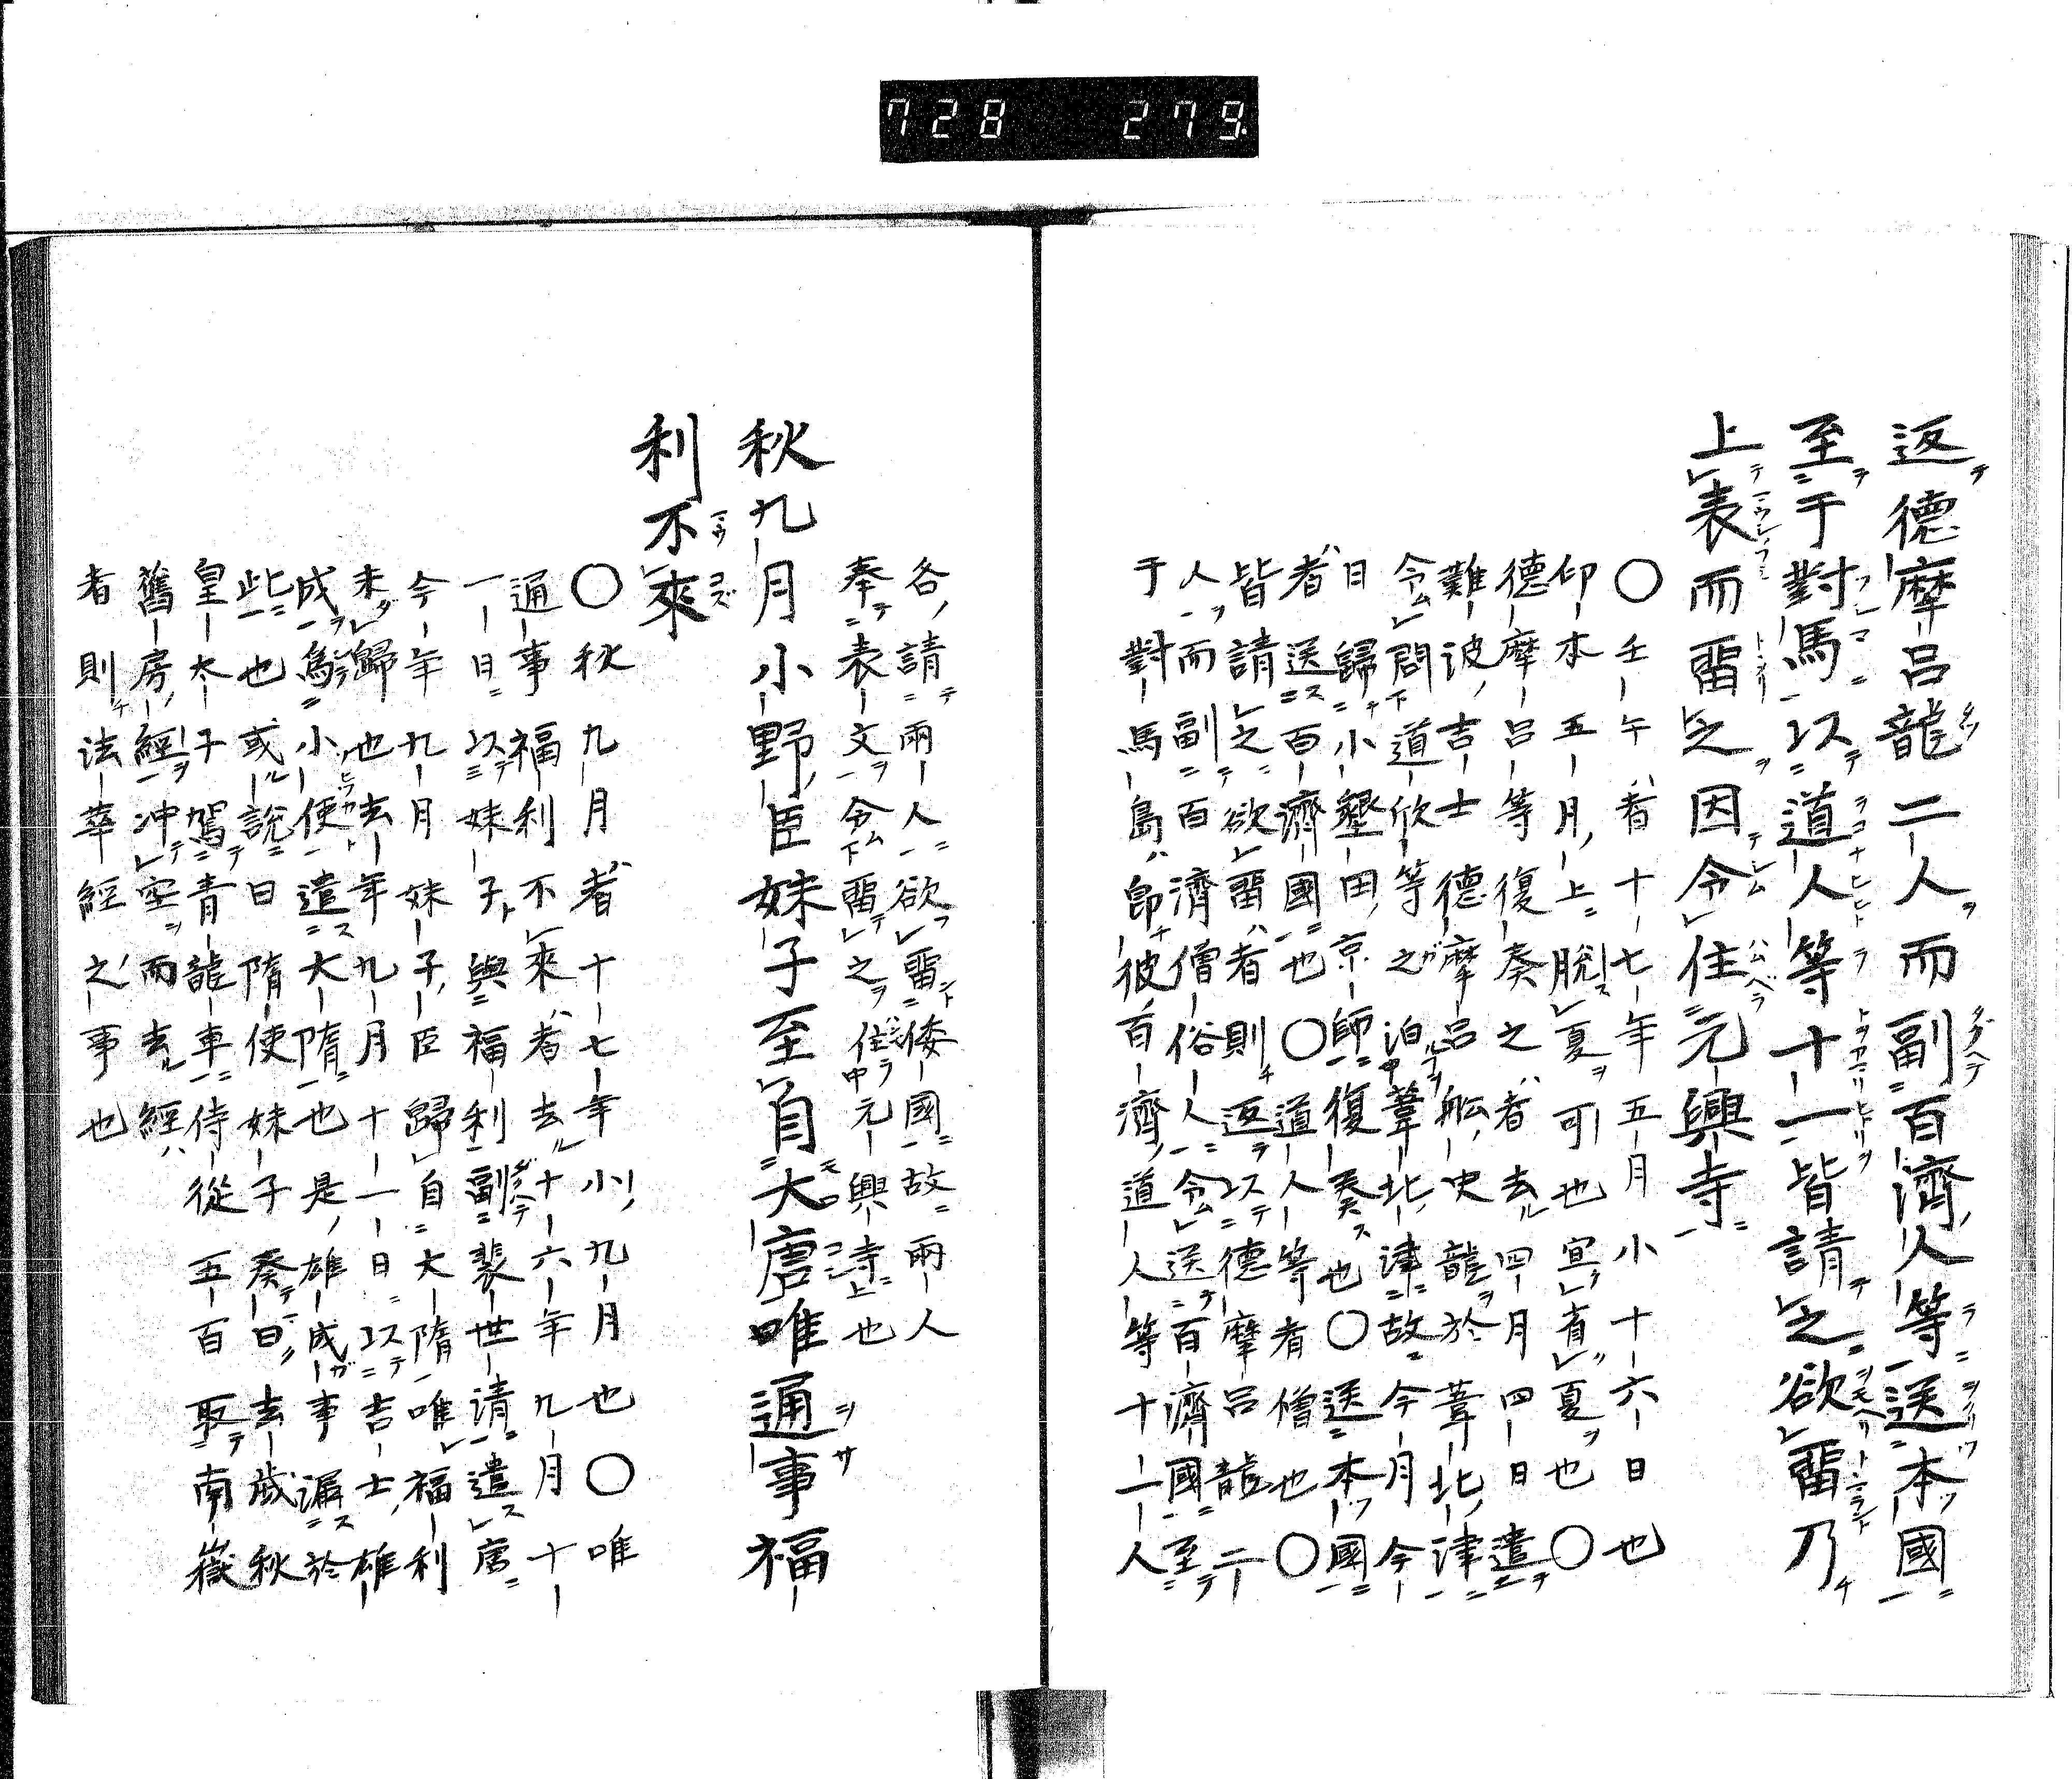 728 279
返德摩呂龍二人而副百濟人等送本國
至于對馬以道人等十一皆請之欲畱乃
上表而畱之因令住元興寺
〇壬午者十七年五月小十六日也
仰本五月上脫夏可也宜有夏也〇
德摩呂等復奏之者去四月四日遣
難波吉士德摩呂舩史龍於葦北津
令問道欣等之泊葦北津故今月今
日歸小墾田京師復奏也〇送本國
者送百濟國也〇道人等者僧也〇
皆請之欲畱者則返以德摩呂龍二
人而副百濟僧俗人令送百濟國至
于對馬島即彼百濟道人等十一人
各請兩人欲畱倭國故兩人
奉表文令畱之住元興寺也
秋九月小野臣妹子至自大唐唯通事福
利不來
〇秋九月者十七年小九月也〇唯
通事福利不來者去十六年九月十
一日以妹子與福利副裴世清遣唐
今年九月妹子臣歸自大隋唯福利
未歸也去年九月十一日以吉士雄
成爲小使遣大隋也是雄成事漏於
此也或說曰隋使妹子奏曰去歲秋
皇太子駕青龍車侍從五百取南嶽
舊房經冲空而去經
者則法華經之事也